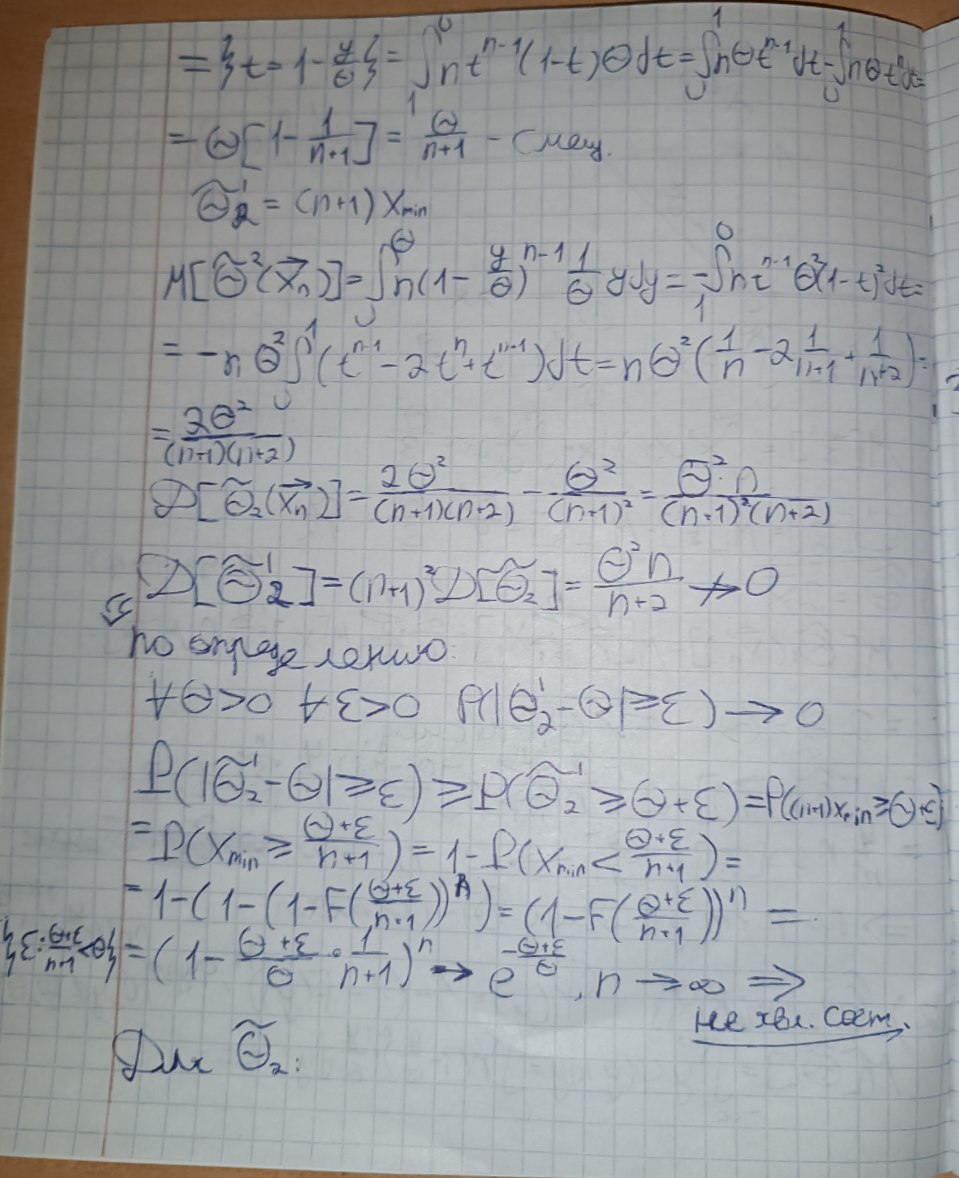 = {t = 1 - y/Θ} = ∫₁⁰ n t^(n-1) (1-t) Θ dt = ∫₀¹ nΘ t^(n-1) dt - ∫₀¹ nΘ t^n dt =
= Θ[1 - 1/(n+1)] = Θ/(n+1) - смещ.
Θ̃₂' = (n+1) X_min
M[Θ̃²(X⃗_n)] = ∫₀^Θ n(1 - y/Θ)^(n-1) 1/Θ y dy = -∫₁⁰ n t^(n-1) Θ²(1-t)² dt =
= -nΘ² ∫₀¹ (t^(n-1) - 2t^n + t^(n-1)) dt = nΘ² (1/n - 2 1/(n+1) + 1/(n+2)) =
= 2Θ²/((n+1)(n+2))
D[Θ̃₂(X⃗_n)] = 2Θ²/((n+1)(n+2)) - Θ²/(n+1)² = Θ²·n/((n+1)²(n+2))
D[Θ̃₂'] = (n+1)² D[Θ̃₂] = Θ²n/(n+2) ↛ 0
по определению:
∀Θ>0 ∀ε>0 P(|Θ̃₂'-Θ|≥ε) → 0
P(|Θ̃₂'-Θ|≥ε) ≥ P(Θ̃₂' ≥ Θ+ε) = P((n+1)X_min ≥ Θ+ε)
= P(X_min ≥ (Θ+ε)/(n+1)) = 1 - P(X_min < (Θ+ε)/(n+1)) =
= 1 - (1 - (1 - F((Θ+ε)/(n+1)))^n) = (1 - F((Θ+ε)/(n+1)))^n =
= (1 - (Θ+ε)/Θ · 1/(n+1))^n → e^(-(Θ+ε)/Θ), n → ∞ ⇒
не явл. сост.
Для Θ̃₂: